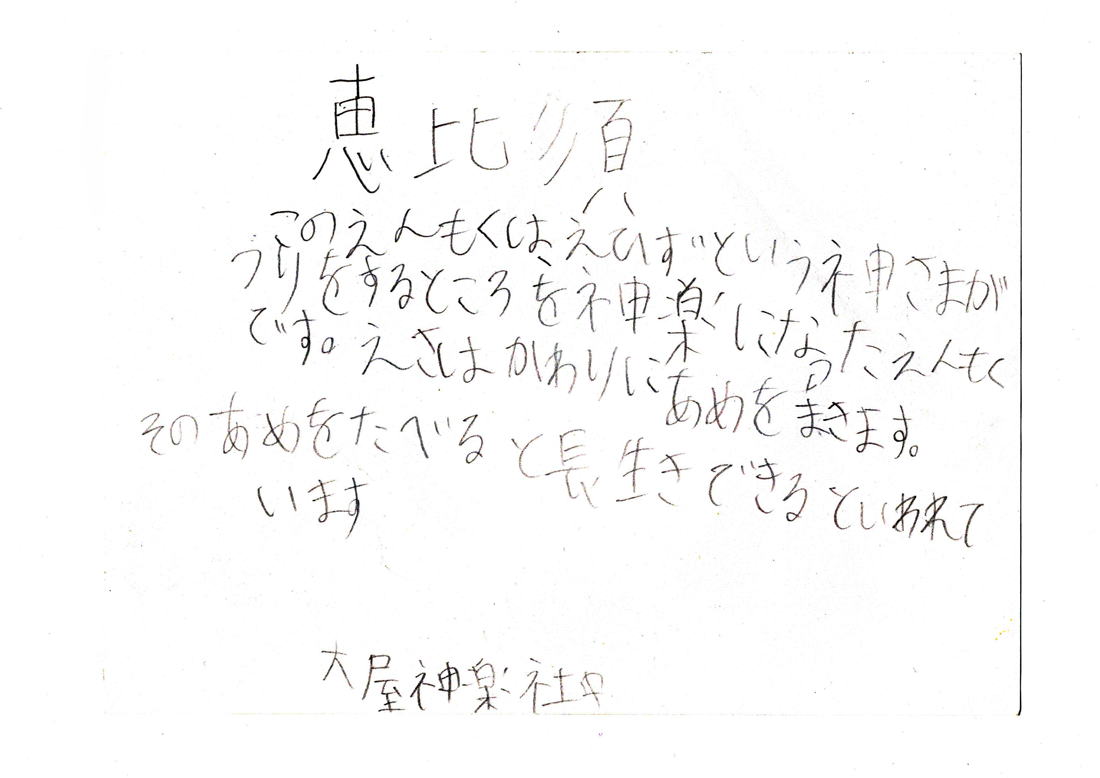 恵比須
このえんもくは、えびすという神さまが
つりをするところを神楽になったえんもく
です。えさはかわりにあめをまきます。
そのあめをたべると長生きできるといわれて
います
大屋神楽社中